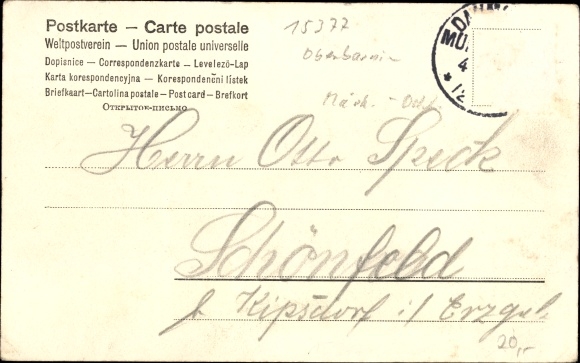 Postkarte — Carte postale
Weltpostverein — Union postale universelle
Dopisnice — Correspondenzkarte — Levelező-Lap
Karta korespondencyjna — Korespondenčni listek
Briefkaart—Cartolina postale—Post card—Brefkort
Открытое-письмо
15377
Märk. - Od
4
* 12
Herrn Otto Speck
Schönfeld
b. Kipsdorf i/ Erzgeb.
20,-